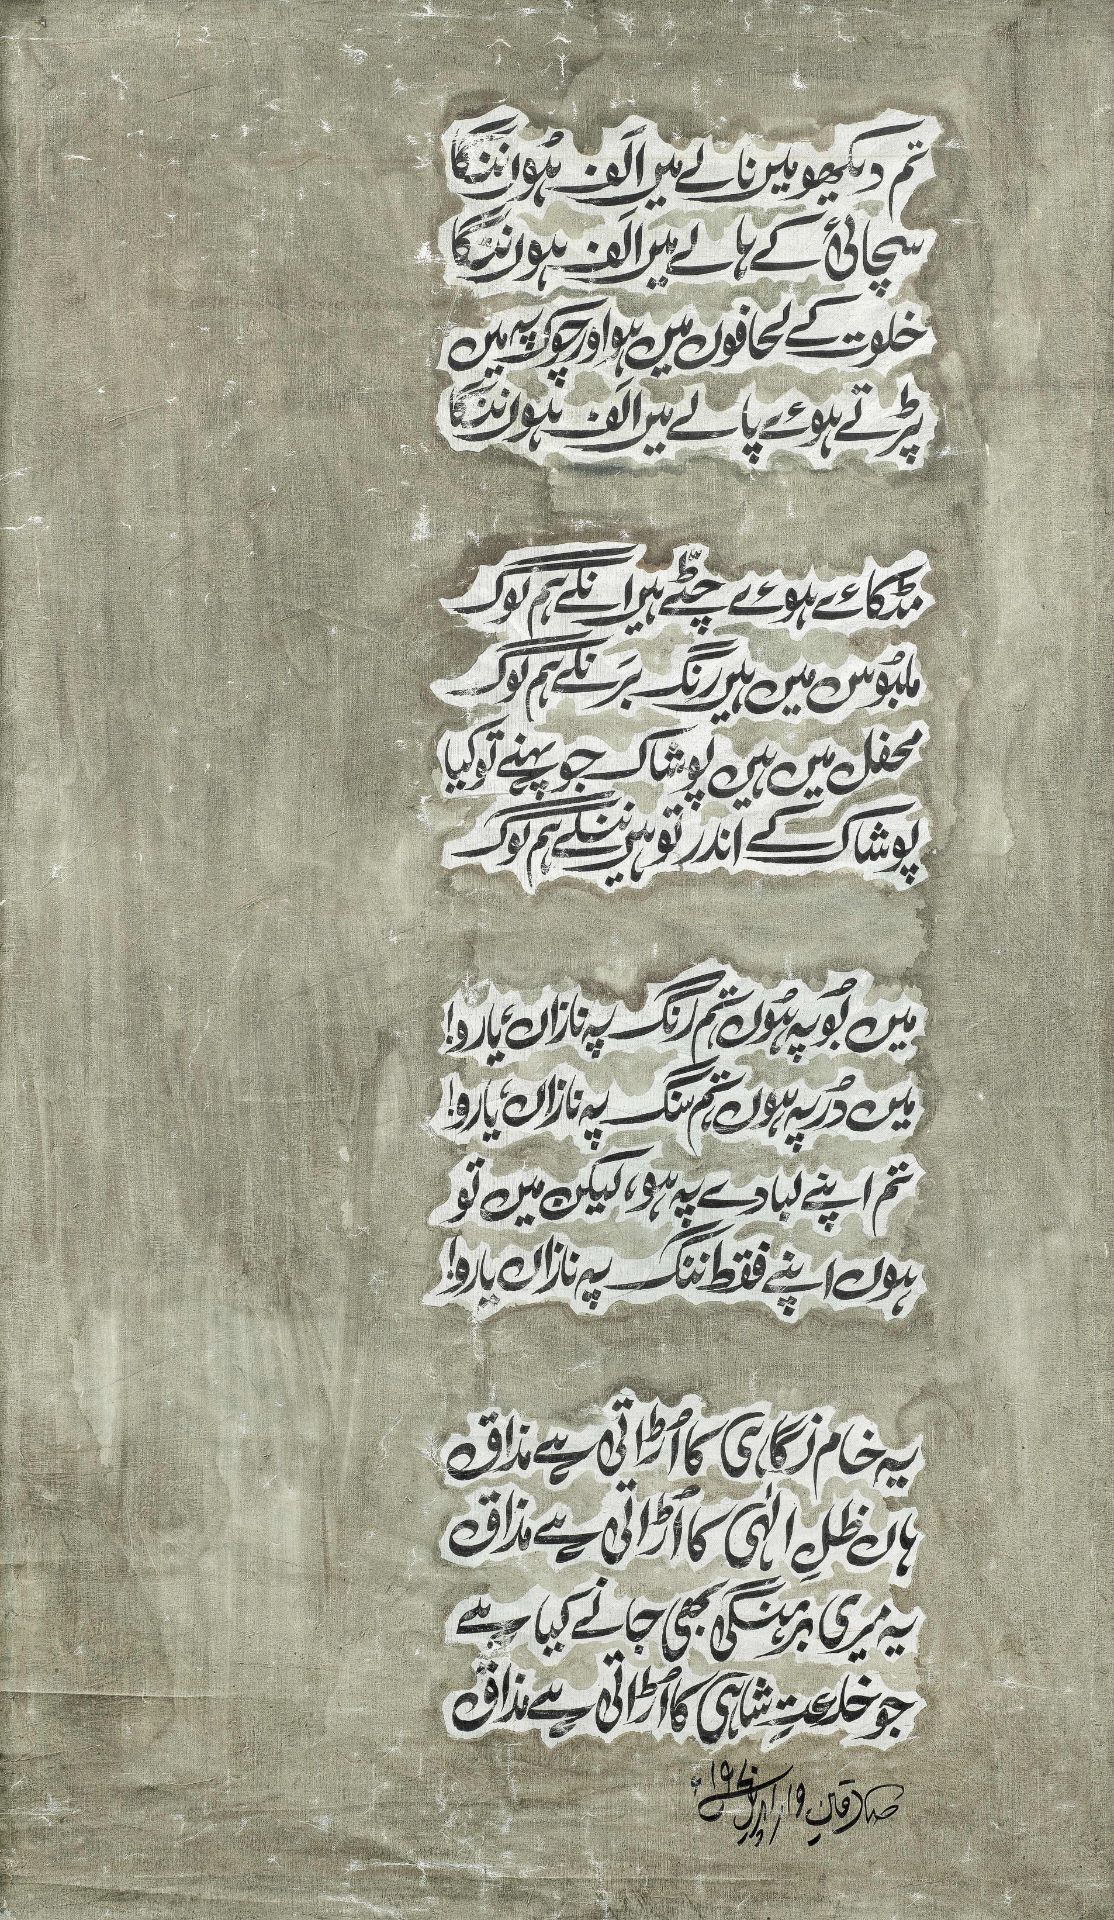 تم دیکھو میں نالے میں الَف ہُوں ننگا
سچائی کے ہالے میں الَف ہوں ننگا
خلوت کے لحافوں میں ہو اور چوک پہ میں
پڑتے ہوئے پالے میں الَف ہوں ننگا
مٹکائے ہوئے چٹے ہیں انگے ہم لوگ
ملبُوس میں ہیں رنگ بَرنگے ہم لوگ
محفل میں ہیں پوشاک جو پہنے تو کیا
پوشاک کے اندر تو ہیں ننگے ہم لوگ
میں بُو پہ ہُوں تم رنگ پہ نازاں، یارو!
میں دُر پہ ہوں تم سنگ پہ نازاں، یارو!
تم اپنے لبادے پہ ہو، لیکن میں تو
ہوں اپنے فقط ننگ پہ نازاں یارو!
یہ خام نگاہی کا اُڑاتی ہے مذاق
ہاں ظلِ الٰہی کا اُڑاتی ہے مذاق
یہ میری برہنگی بھی جانے کیا ہے
جو خلعتِ شاہی کا اُڑاتی ہے مذاق
صادقین ۱۹ اپریل